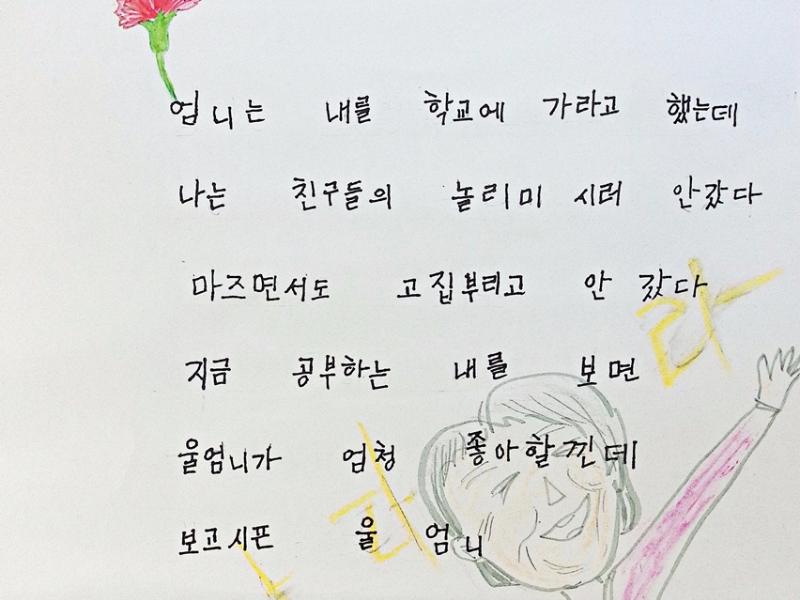 엄니는 내를 학교에 가라고 했는데
나는 친구들의 놀리미 시러 안갔다
마즈면서도 고집부리고 안 갔다
지금 공부하는 내를 보면
울엄니가 엄청 좋아할낀데
보고시픈 울 엄니